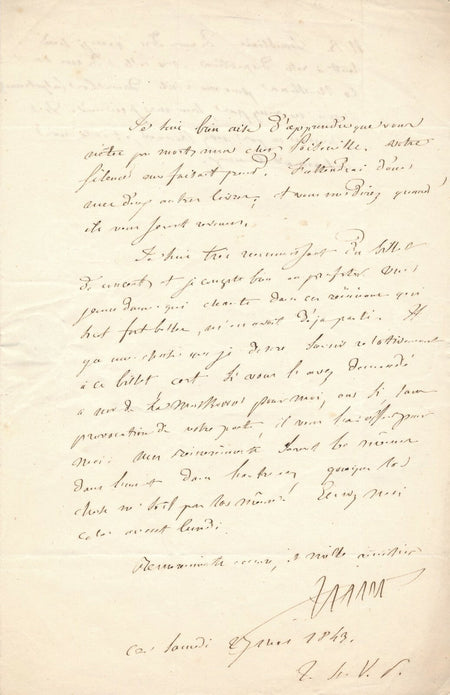 Je suis bien aise d'apprendre que vous
n'êtes pas mort, mon cher Votre
silence me faisait J'attendrai donc
mes deux autres livres, et vous me direz quand
ils vous seront revenus.
Je suis très reconnaissant Du billet
de concert et je compte bien en profiter. une
jeune dame qui chante dans ces réunions
est fort belle, m'en avait déjà parlé. Il
y a une chose que je désire savoir relativement
à ce billet c'est si vous l'avez demandé
à pour moi, ou si, sans
provocation de votre part, il vous l'a offert pour
moi. Ma reconnaissance serait la même
dans l'un et dans l'autre cas, quoique la
chose ne soit pas la même. Ecrivez moi
cela avant lundi.
encore, et mille amitiés
Ce Samedi 27 mai 1843.
T. S. V. P.